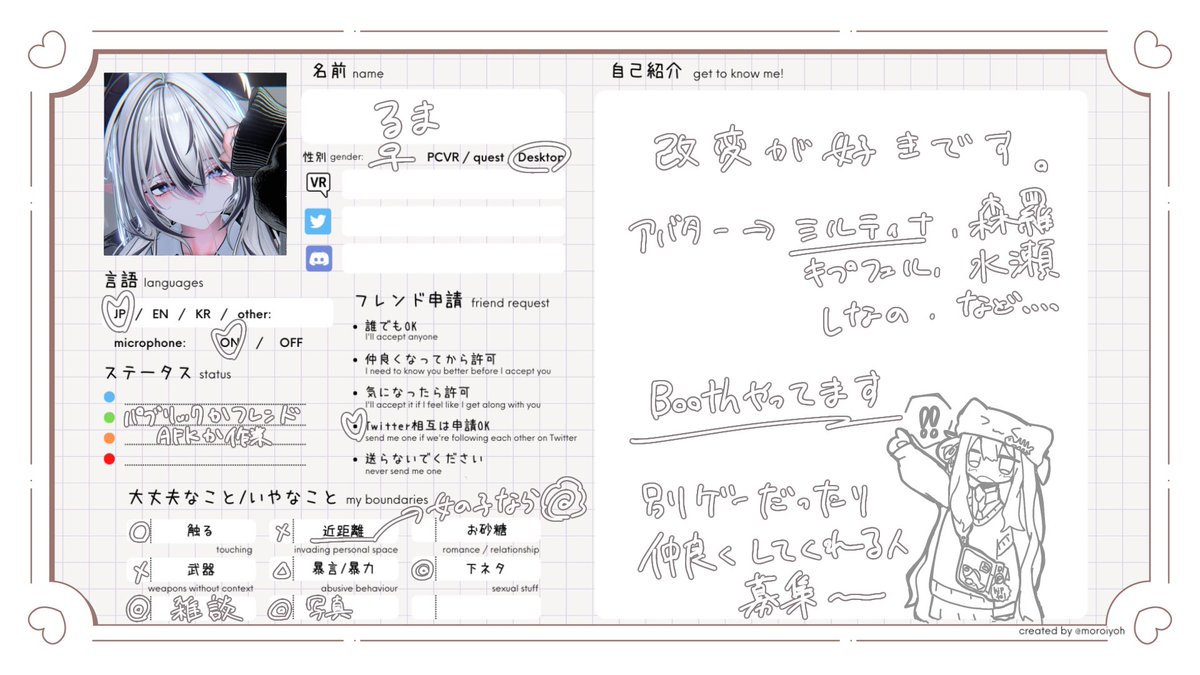 名前 name
るま
性別 gender: 早 PCVR / quest / Desktop
VR
言語 languages
JP / EN / KR / other:
microphone: ON / OFF
ステータス status
パブリックかフレンド
AFKか作業
フレンド申請 friend request
• 誰でもOK
I'll accept anyone
• 仲良くなってから許可
I need to know you better before I accept you
• 気になったら許可
I'll accept it if I feel like I get along with you
• Twitter相互は申請OK
send me one if we're following each other on Twitter
• 送らないでください
never send me one
大丈夫なこと/いやなこと my boundaries
女の子なら◎
○ 触る
touching
× 近距離
invading personal space
お砂糖
romance / relationship
× 武器
weapons without context
△ 暴言/暴力
abusive behaviour
◎ 下ネタ
sexual stuff
◎ 雑談
◎ 写真
自己紹介 get to know me!
改変が好きです。
アバター→ ミルティナ、森羅
キプフェル、水瀬
しなの、など....
Boothやってます
!!
別ゲーだったり
仲良くしてくれる人
募集〜
created by @moroiyoh